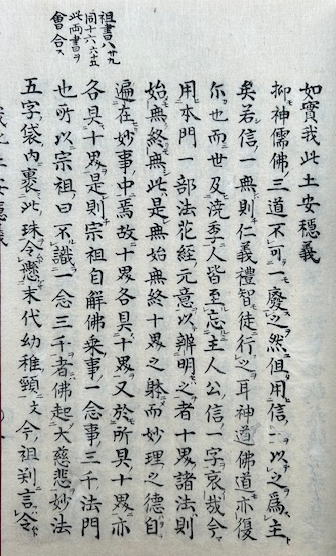 祖書八廿九
同十六六十五
此両書ヲ
會合ス
如實我此土安穩義
抑神儒佛三道不可一廢之然但用信一以之爲主
矣若信一無則仁義禮智徒行之耳神道佛道亦復
尓也而世及澆季人皆至忘主人公信一字哀哉今
用本門一部法花経元意以辨明之者十界諸法則
始無終無此是無始無終十界之躰而妙理之德自
遍在妙事中焉故十界各具十界又於所具十界亦
各具十界是則宗祖自解佛乗事一念事三千法門
也所以宗祖曰不識一念三千者佛起大慈悲妙法
五字袋内裹此珠令懸末代幼稚頸文今祖判言令